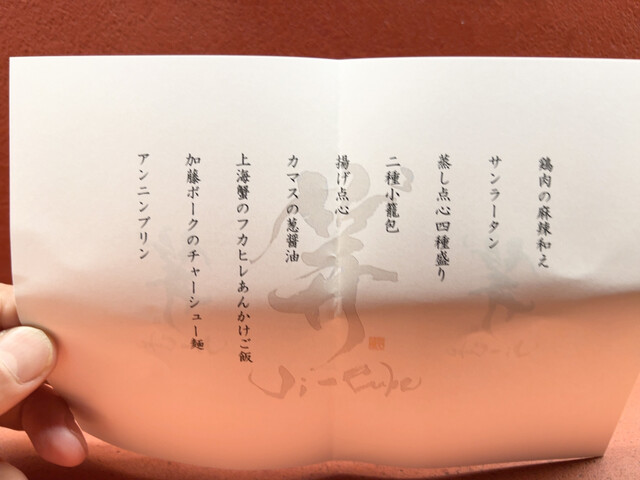 鶏肉の麻辣和え
サンラータン
蒸し点心四種盛り
二種小籠包
揚げ点心
カマスの葱醤油
上海蟹のフカヒレあんかけご飯
加藤ポークのチャーシュー麺
アンニンプリン
Ji-Cube